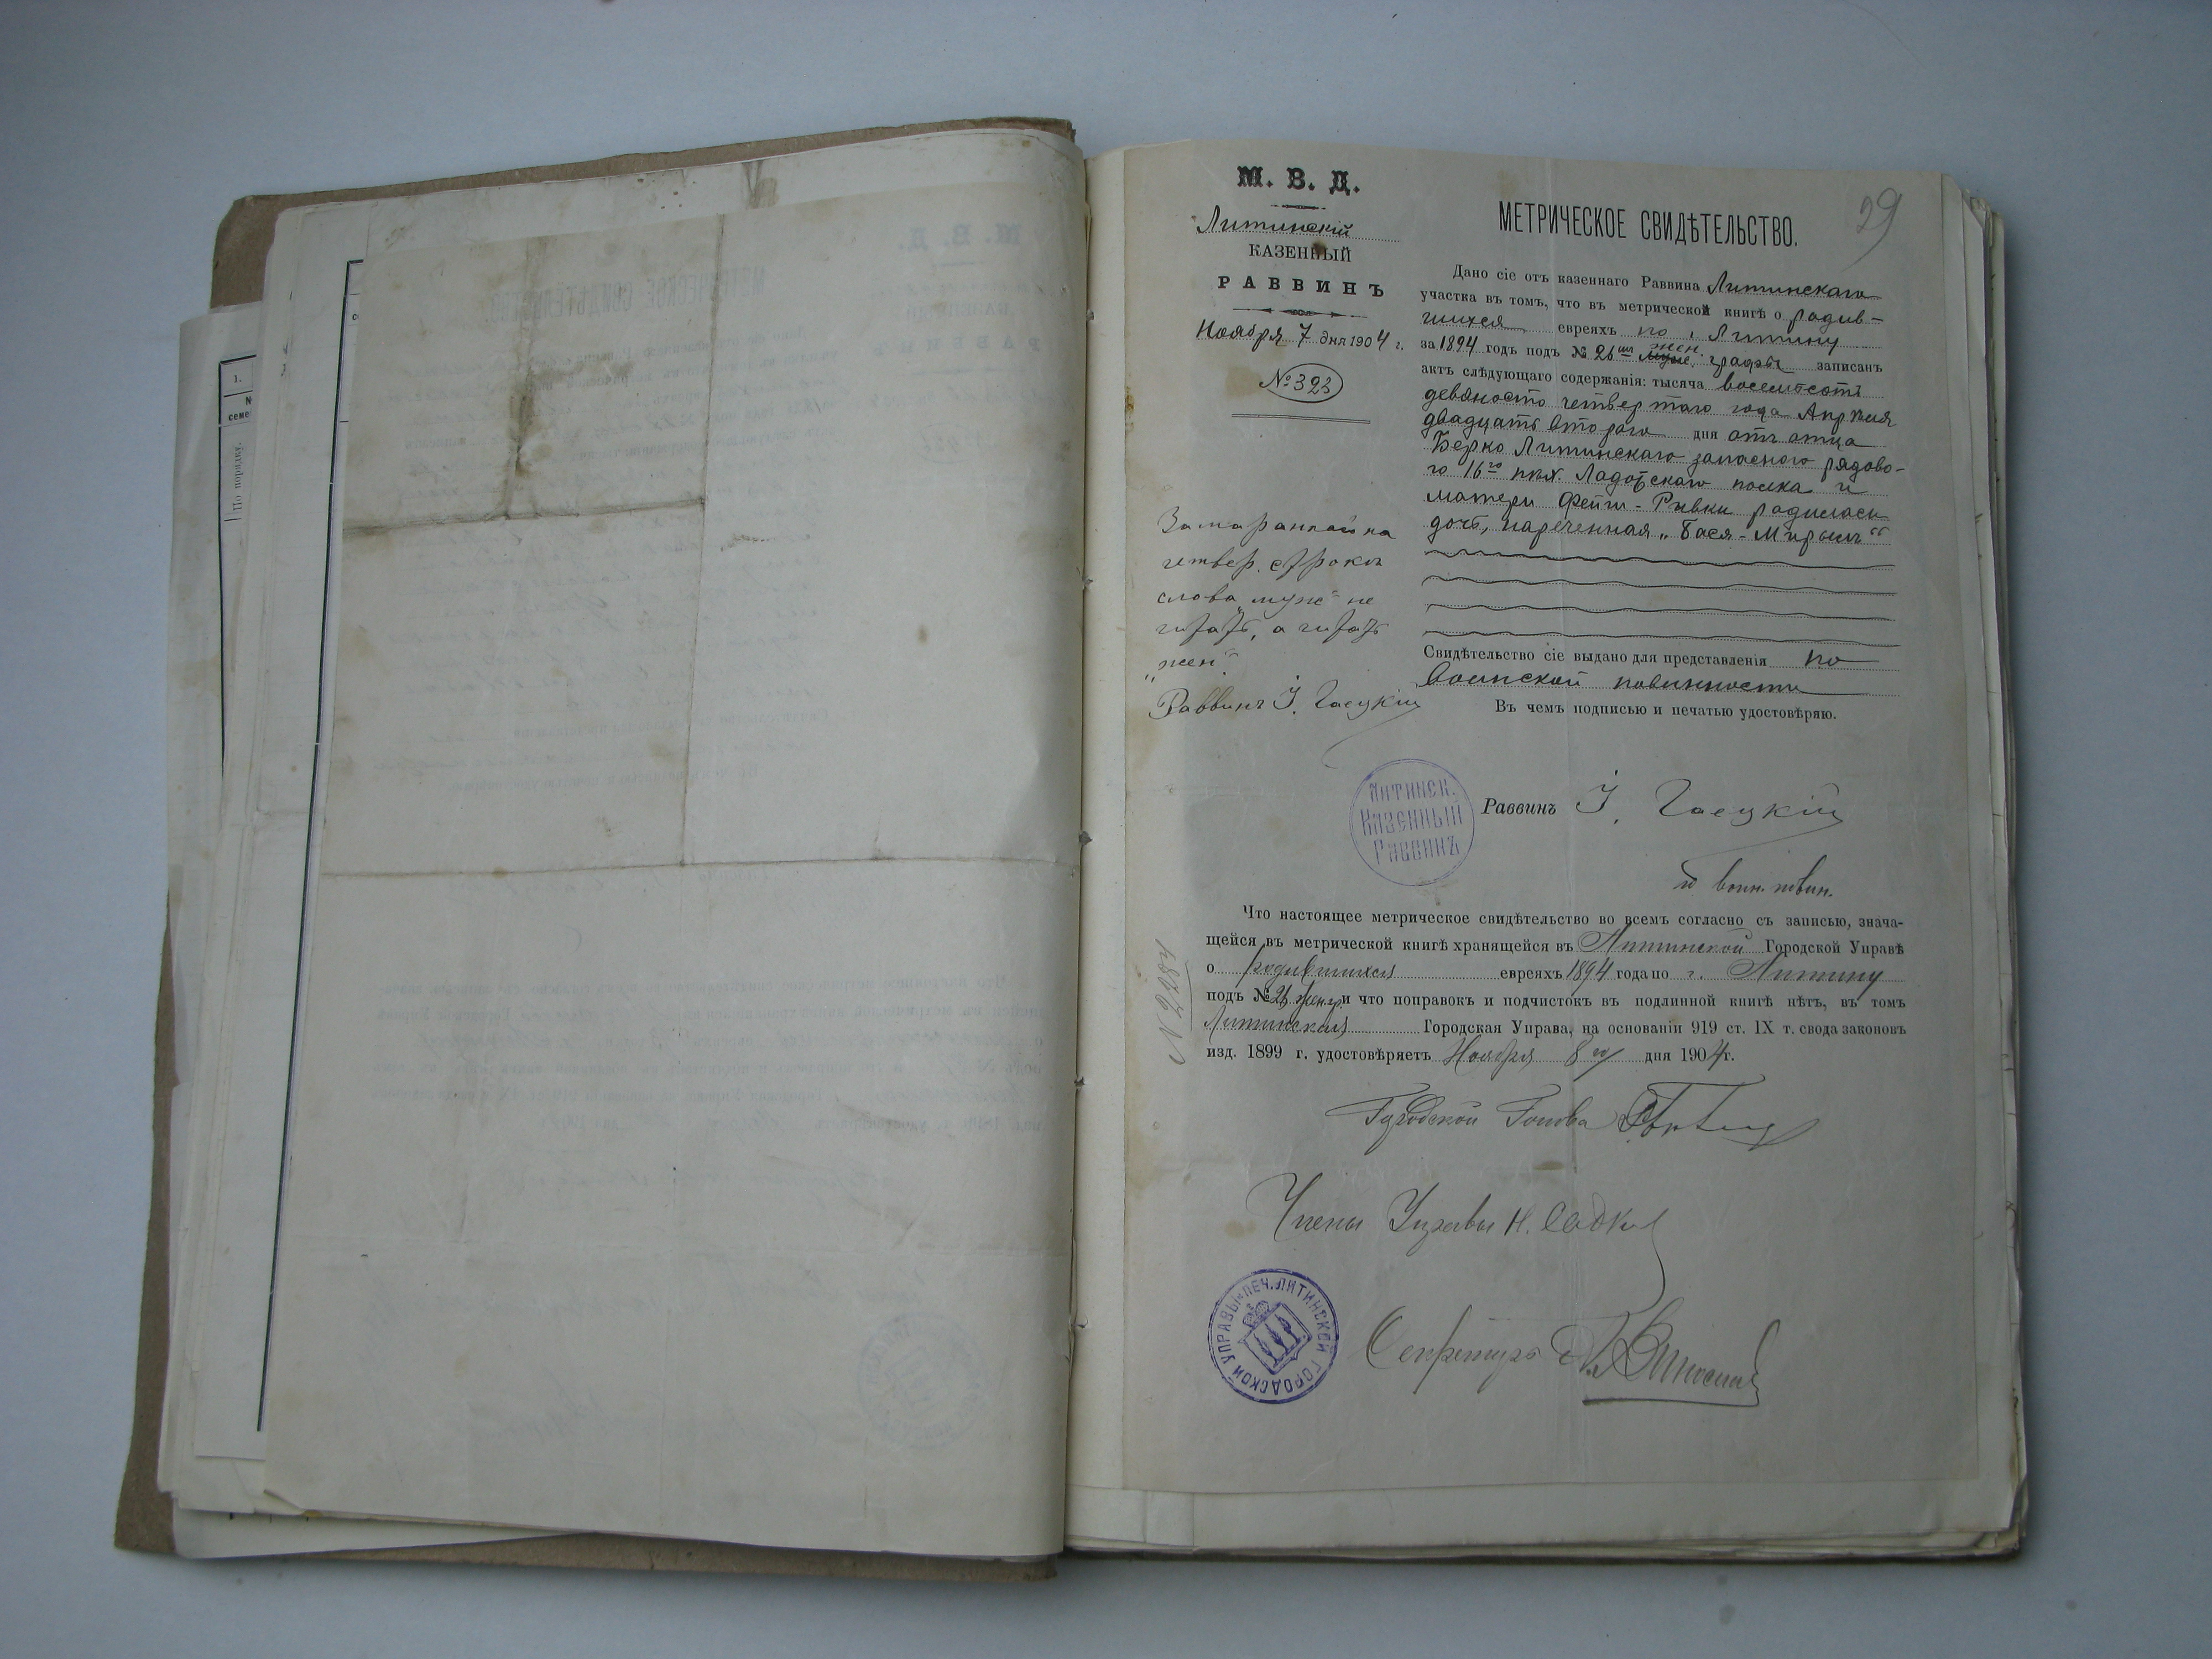 1.
По порядку.
М. В. Д.
Литинскій
КАЗЕННЫЙ
РАВВИНЪ
Ноября 7 дня 1904 г.
№ 323
Замаранное на
четвер. строкѣ
слова „муж“ не
читать, а читать
„жен“
Раввинъ І. Гаецкій
29
МЕТРИЧЕСКОЕ СВИДѢТЕЛЬСТВО.
Дано сіе отъ казеннаго Раввина Литинскаго
участка въ томъ, что въ метрической книгѣ о родив-
шихся евреяхъ по г. Литину
за 1894 годъ подъ № 26 муж. жен. графы записанъ
актъ слѣдующаго содержанія: тысяча восемьсотъ
девяносто четвертаго года Апрѣля
двадцать второго дня отъ отца
Берко Литинскаго запасного рядово-
го 16го пѣх. Ладожскаго полка и
матери Фейги-Ривки родилась
дочь, нареченная „Бася-Мирьямъ“
Свидѣтельство сіе выдано для представленія по
воинской повинности
Въ чемъ подписью и печатью удостовѣряю.
ЛИТИНСК.
КАЗЕННЫЙ
РАВВИНЪ
Раввинъ І. Гаецкій
по воин. повин.
№ 2284
Что настоящее метрическое свидѣтельство во всемъ согласно съ записью, знача-
щейся въ метрической книгѣ хранящейся въ Литинской Городской Управѣ
о родившихся евреяхъ 1894 года по г. Литину
подъ № 26 жен. гр. и что поправокъ и подчистокъ въ подлинной книгѣ нѣтъ, въ томъ
Литинская Городская Управа, на основаніи 919 ст. IX т. свода законовъ
изд. 1899 г. удостовѣряетъ Ноября 8го дня 1904 г.
Городской Голова
Члены Управы Н. Садк
ПЕЧ. ЛИТИНСКОЙ ГОРОДСКОЙ УПРАВЫ
Секретарь